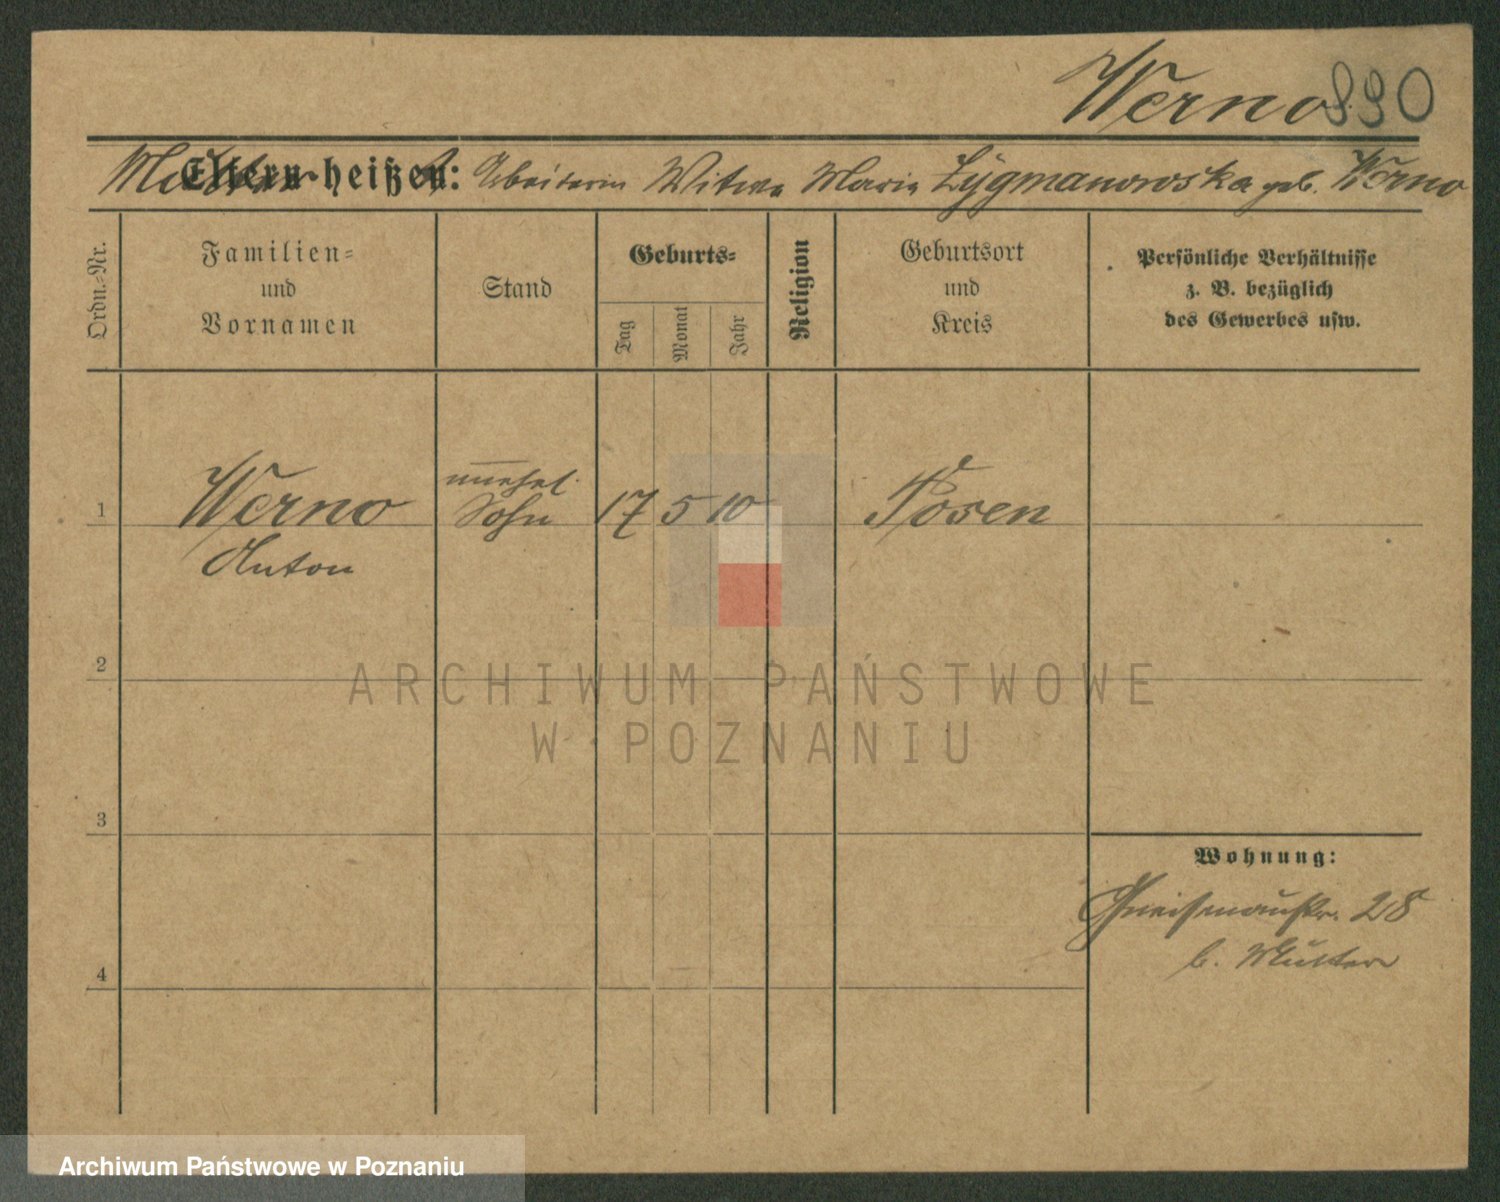 Werno 890
Eltern heißen: Mutter Arbeiterin Witwe Maria Zygmanowska geb. Werno
Ordn.-Nr.
Familien=
und
Vornamen
Stand
Geburts=
Tag
Monat
Jahr
Religion
Geburtsort
und
Kreis
Persönliche Verhältnisse
z. B. bezüglich
des Gewerbes usw.
1
Werno
Anton
unehel.
Sohn
17 5 10
Posen
2
ARCHIWUM PAŃSTWOWE
W POZNANIU
3
Wohnung:
Gneisenaustr. 28
b. Mutter
4
Archiwum Państwowe w Poznaniu